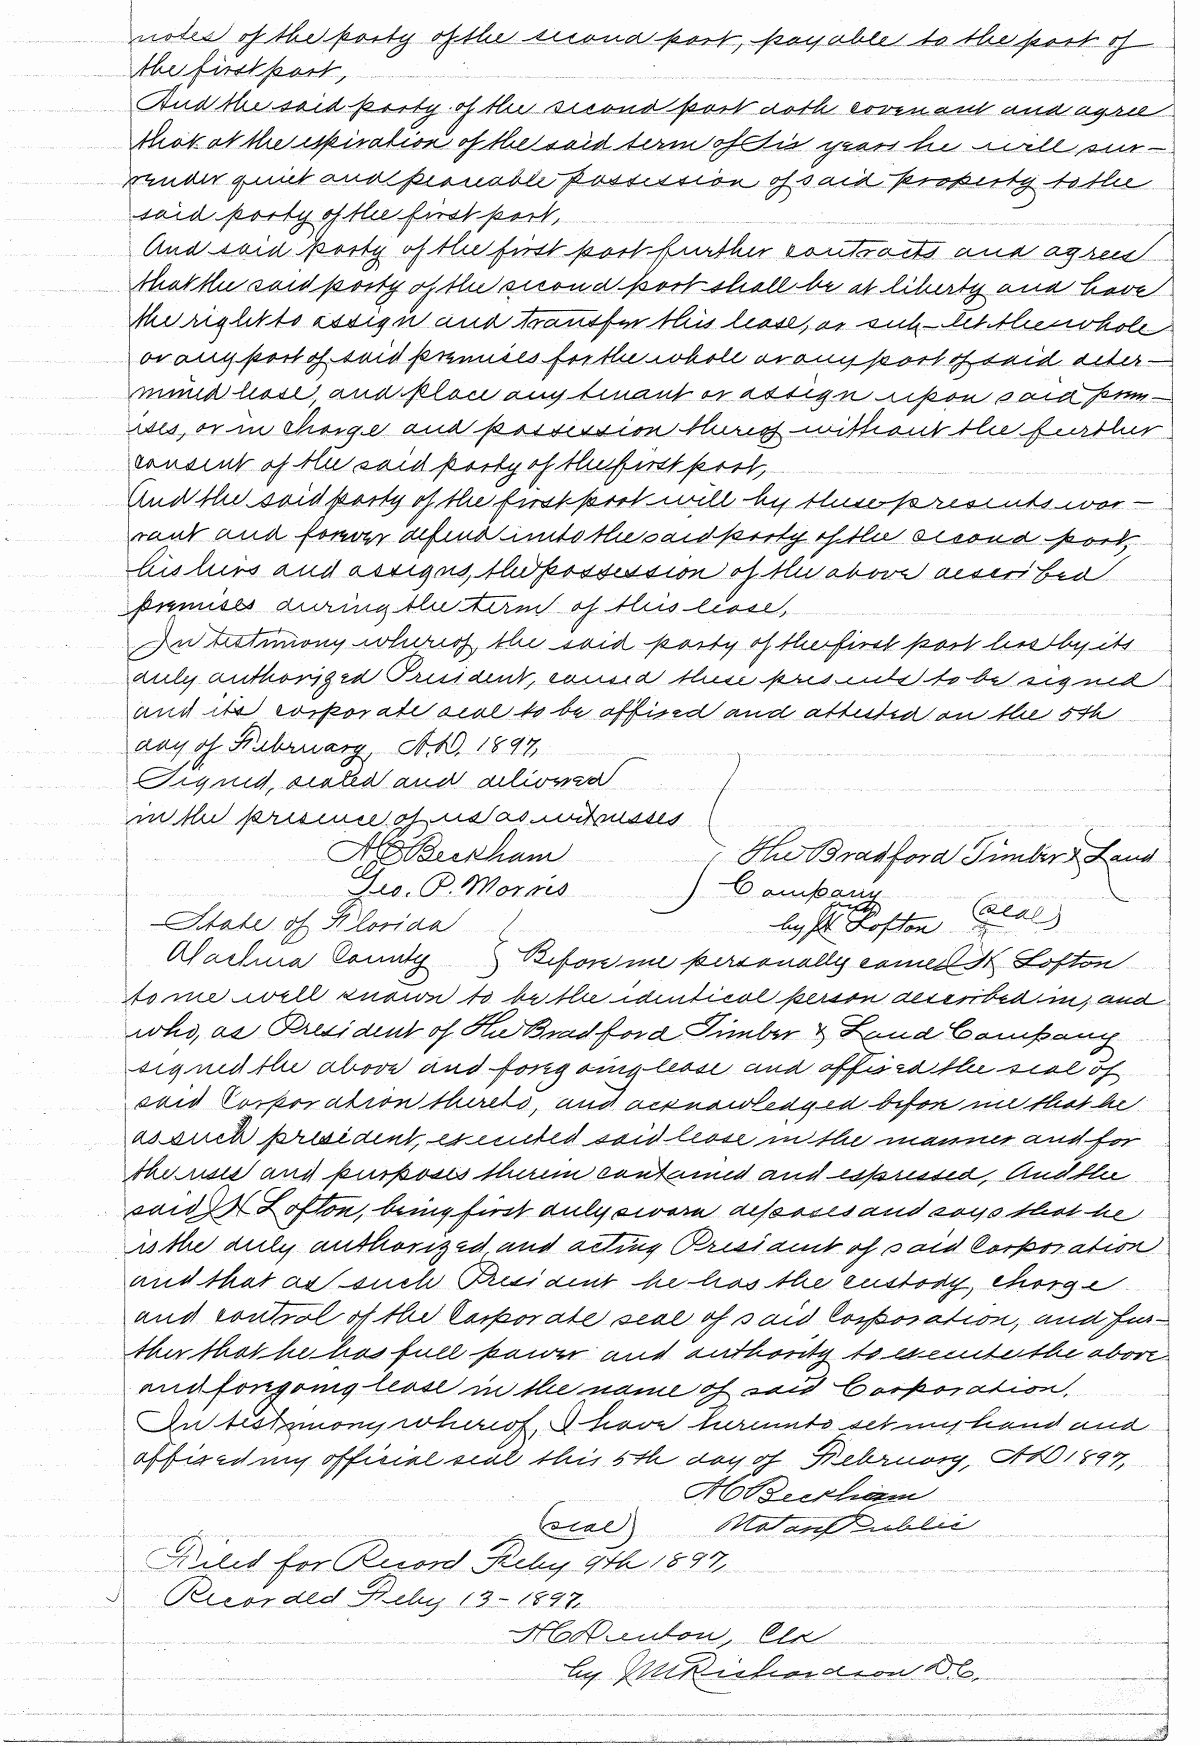 notes of the party of the second part, payable to the part of
the first part,
And the said party of the second part doth covenant and agree
that at the expiration of the said term of Six years he will sur-
render quiet and peaceable possession of said property to the
said party of the first part,
And said party of the first part further contracts and agrees
that the said party of the second part shall be at liberty and have
the right to assign and transfer this lease, or sub-let the whole
or any part of said premises for the whole or any part of said deter-
mined lease, and place any tenant or assign upon said prem-
ises, or in charge and possession thereof without the further
consent of the said party of the first part,
And the said party of the first part will by these presents war-
rant and forever defend unto the said party of the second part,
his heirs and assigns, the possession of the above described
premises during the term of this lease,
In testimony whereof, the said party of the first part has by its
duly authorized President, caused these presents to be signed
and its corporate seal to be affixed and attested on the 5th
day of February, A.D. 1897,
Signed, sealed and delivered
in the presence of us as witnesses
H C Beckham The Bradford Timber & Land
Geo. P. Morris Company
State of Florida by Lofton (seal)
Alachua County Before me personally came Lofton
to me well known to be the identical person described in, and
who, as President of The Bradford Timber & Land Company
signed the above and foregoing lease and affixed the seal of
said Corporation thereto, and acknowledged before me that he
as such president, executed said lease in the manner and for
the uses and purposes therein contained and expressed, And the
said Lofton, being first duly sworn deposes and says that he
is the duly authorized and acting President of said Corporation
and that as such President he has the custody, charge
and control of the Corporate seal of said Corporation, and fur-
ther that he has full power and authority to execute the above
and foregoing lease in the name of said Corporation.
In testimony whereof, I have hereunto set my hand and
affixed my official seal this 5th day of February, A.D 1897,
H C Beckham
(seal) Notary Public
Filed for Record Feby 9th 1897,
Recorded Feby 13-1897,
H C Denton, Clk
by J M Richardson D.C.